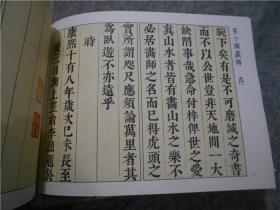 芥子園畫傳 序
腕下矣有是不可磨滅之奇書
而不以公世豈非天地間一大
缺陷事哉急命付梓俾世之愛
真山水者皆有畫山水之樂不
必居畫師之名而已得虎頭之
實所謂咫尺應須論萬里者其
為臥遊不亦遠乎
時
康熙十有八年歲次己未長至
後三日湖上笠翁李漁題於